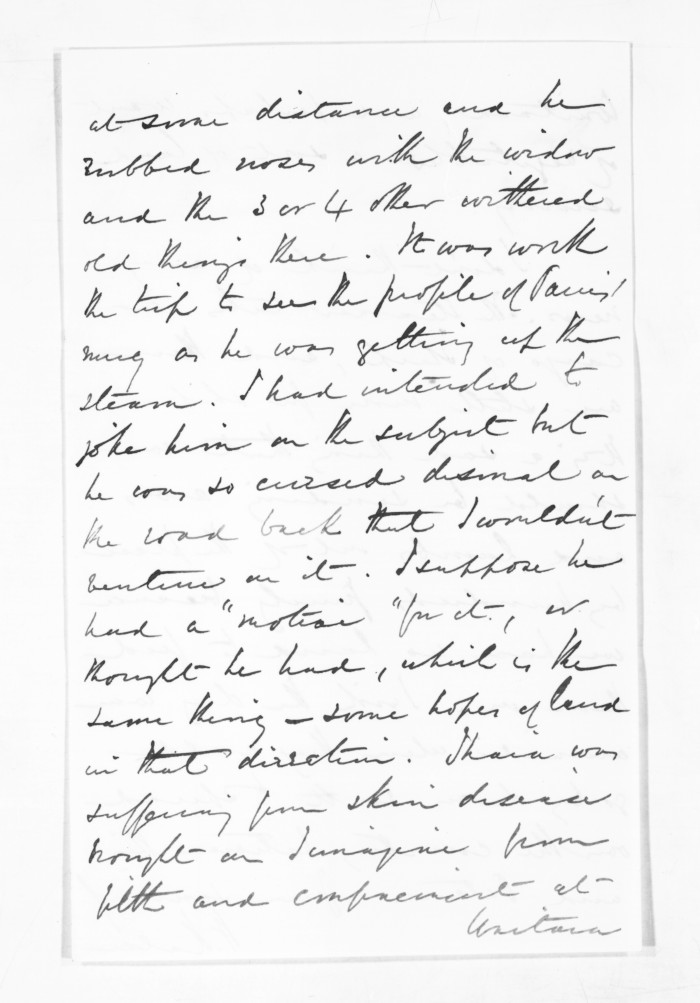 at some distance and he
rubbed noses with the widow
and the 3 or 4 other withered
old things there. It was worth
the trip to see the profile of Parris'
mug as he was getting up the
steam. I had intended to
joke him on the subject but
he was so cursed dismal on
the road back that I wouldn't
venture on it. I suppose he
had a "motive" for it, or
thought he had, which is the
same thing – some hopes of land
in that direction. Ihaia was
suffering from skin disease
brought on I imagine from
filth and confinement at
Waitara